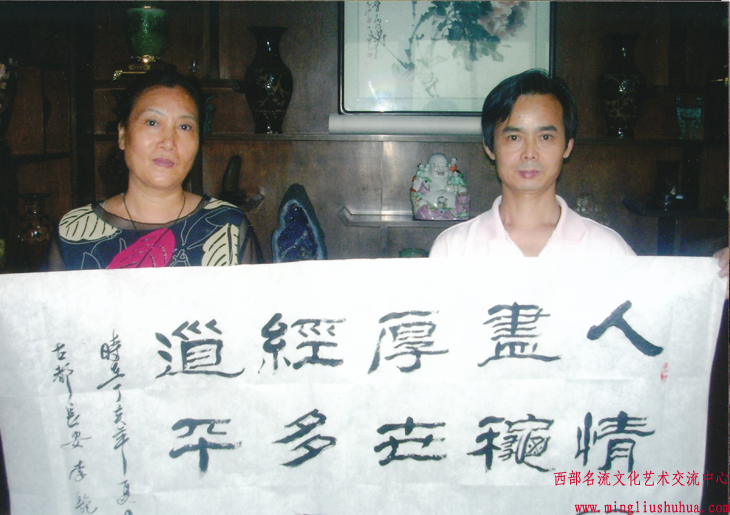 人情
盡龝
厚世
經多
道平
時在丁亥年夏
古都長安李
西部名流文化艺术交流中心
www.mingliushuhua.com